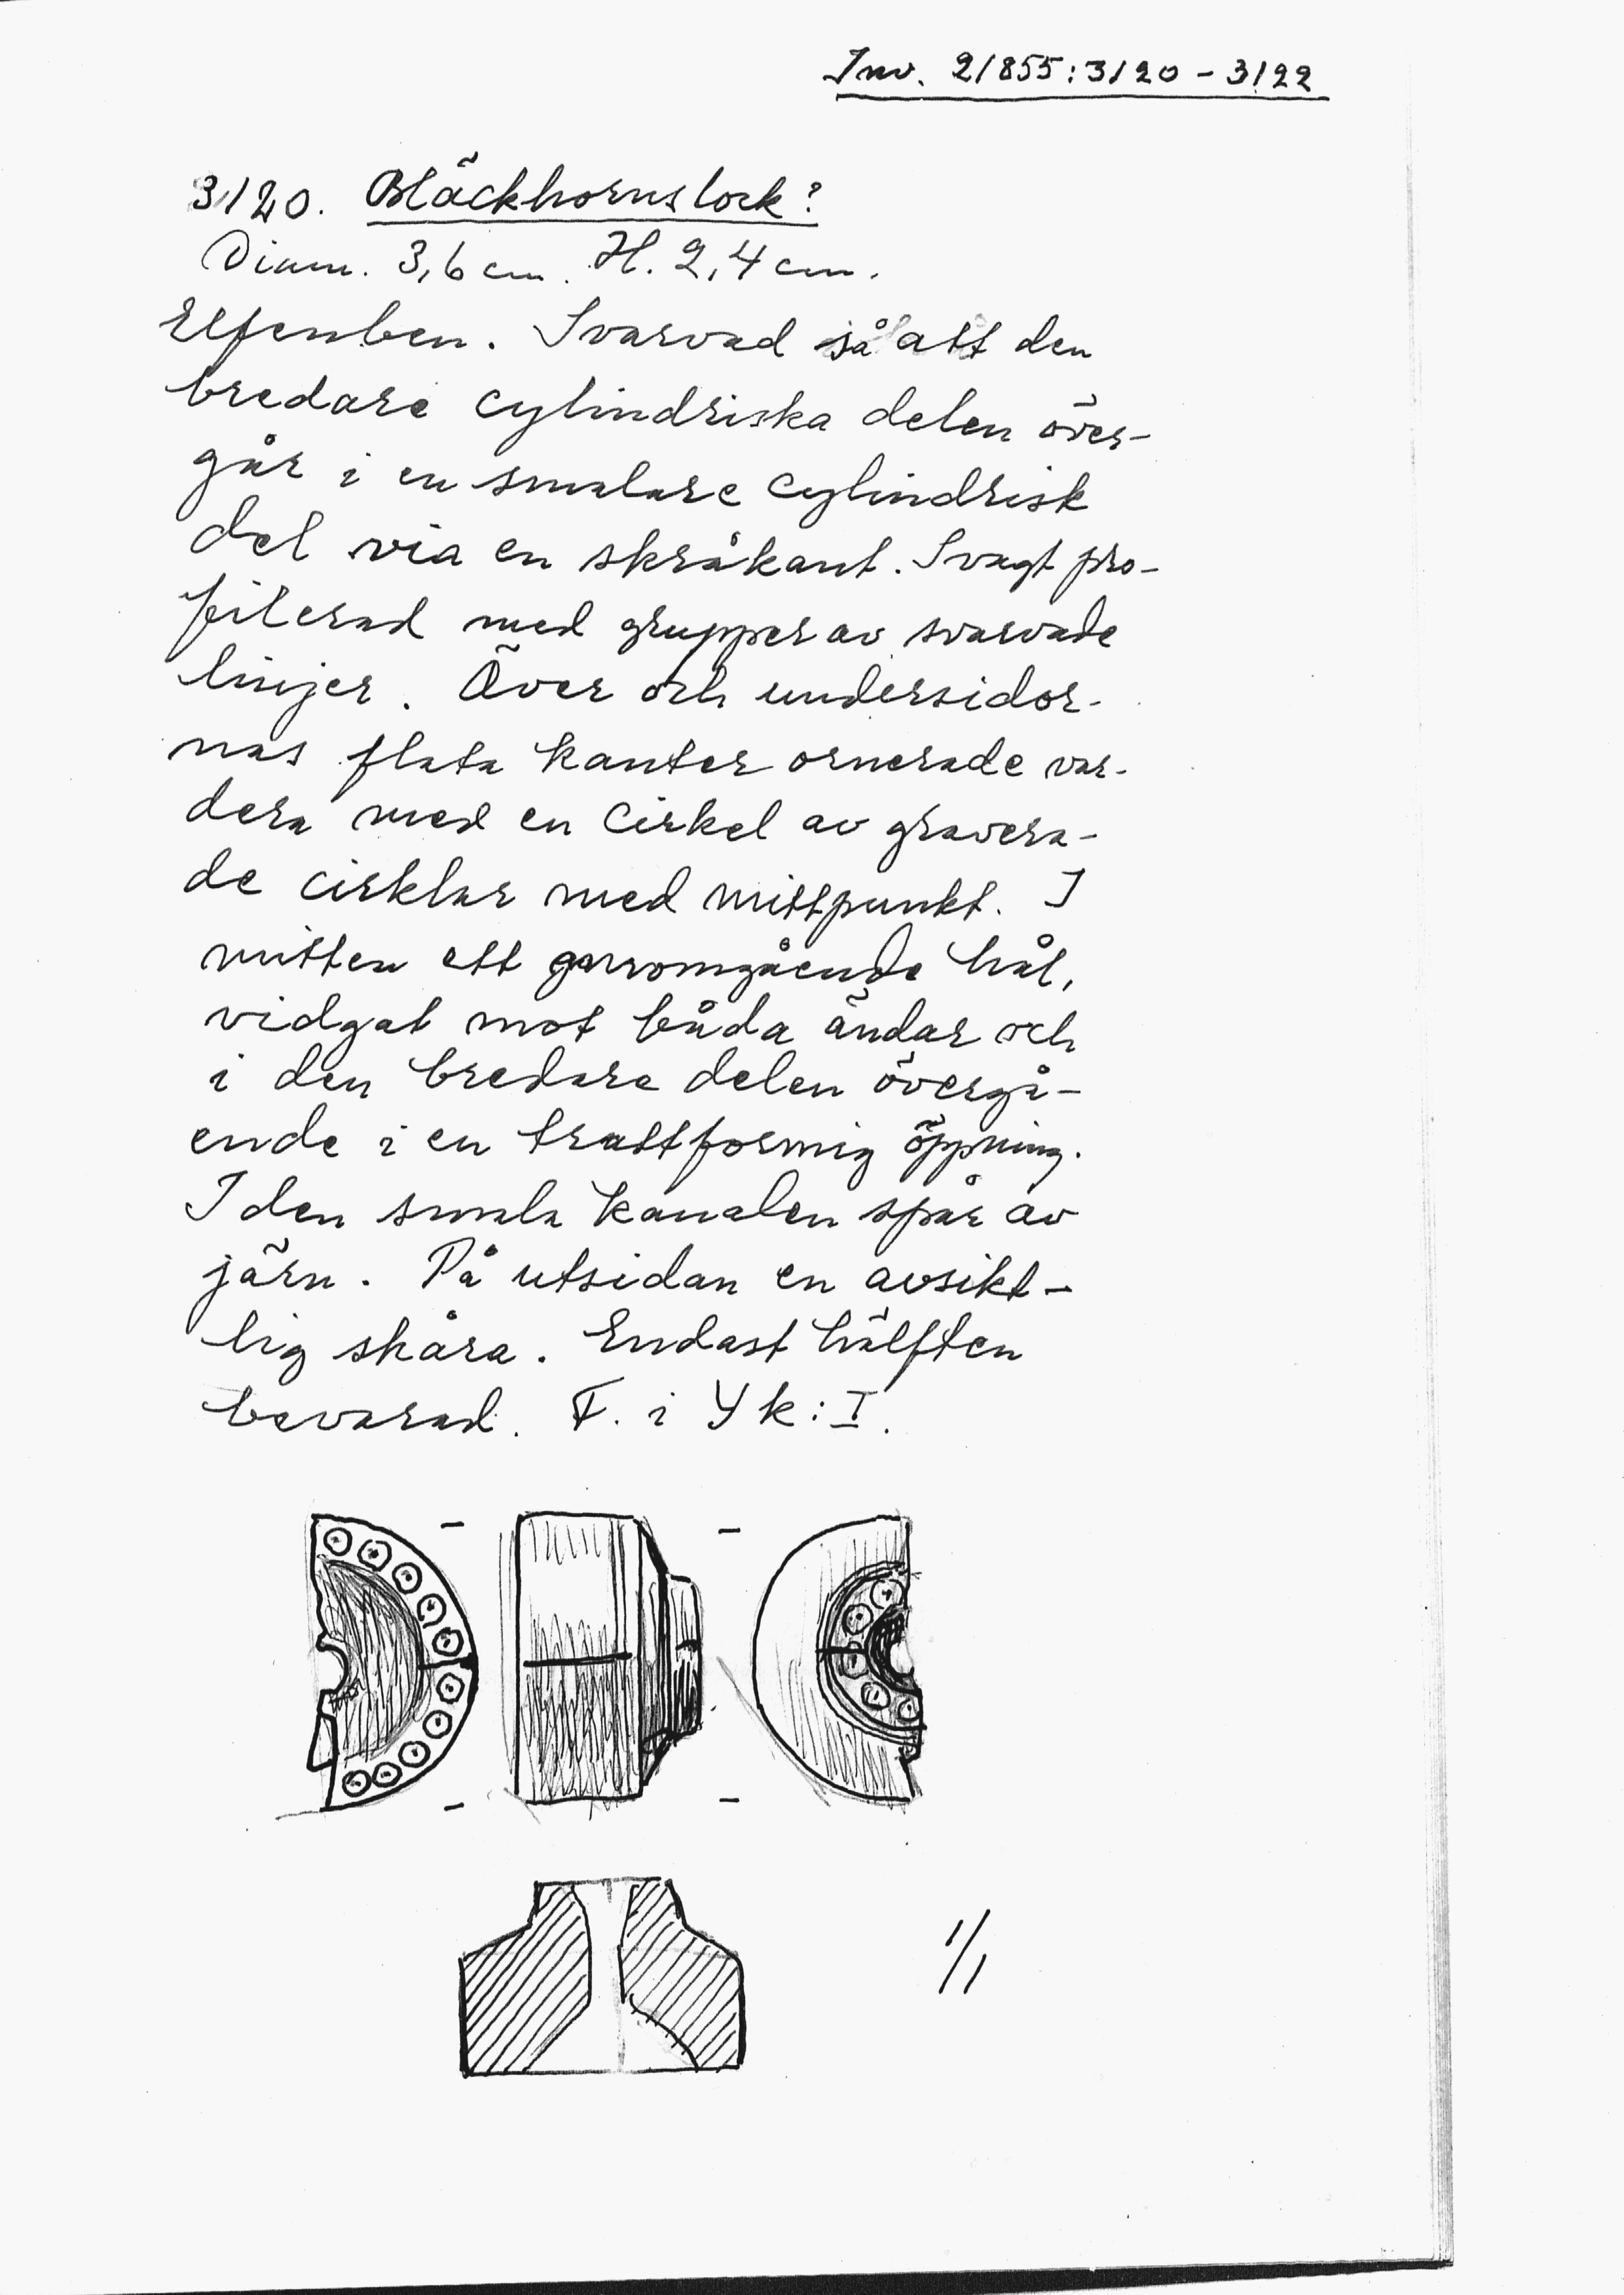 Inv. 21855:3120 - 3122
3120. Bläckhornslock?
Diam. 3,6 cm. H. 2,4 cm.
Elfenben. Svarvad så att den
bredare cylindriska delen över-
går i en smalare cylindrisk
del via en skråkant. Svagt pro-
filerad med grupper av svarvade
linjer. Över och undersidor-
nas flata kanter ornerade var-
dera med en cirkel av gravera-
de cirklar med mittpunkt. I
mitten ett genomgående hål,
vidgat mot båda ändar och
i den bredare delen övergå-
ende i en trattformig öppning.
I den smala kanalen spår av
järn. På utsidan en avsikt-
lig skåra. Endast hälften
bevarad. F. i Yk: I.
1/1